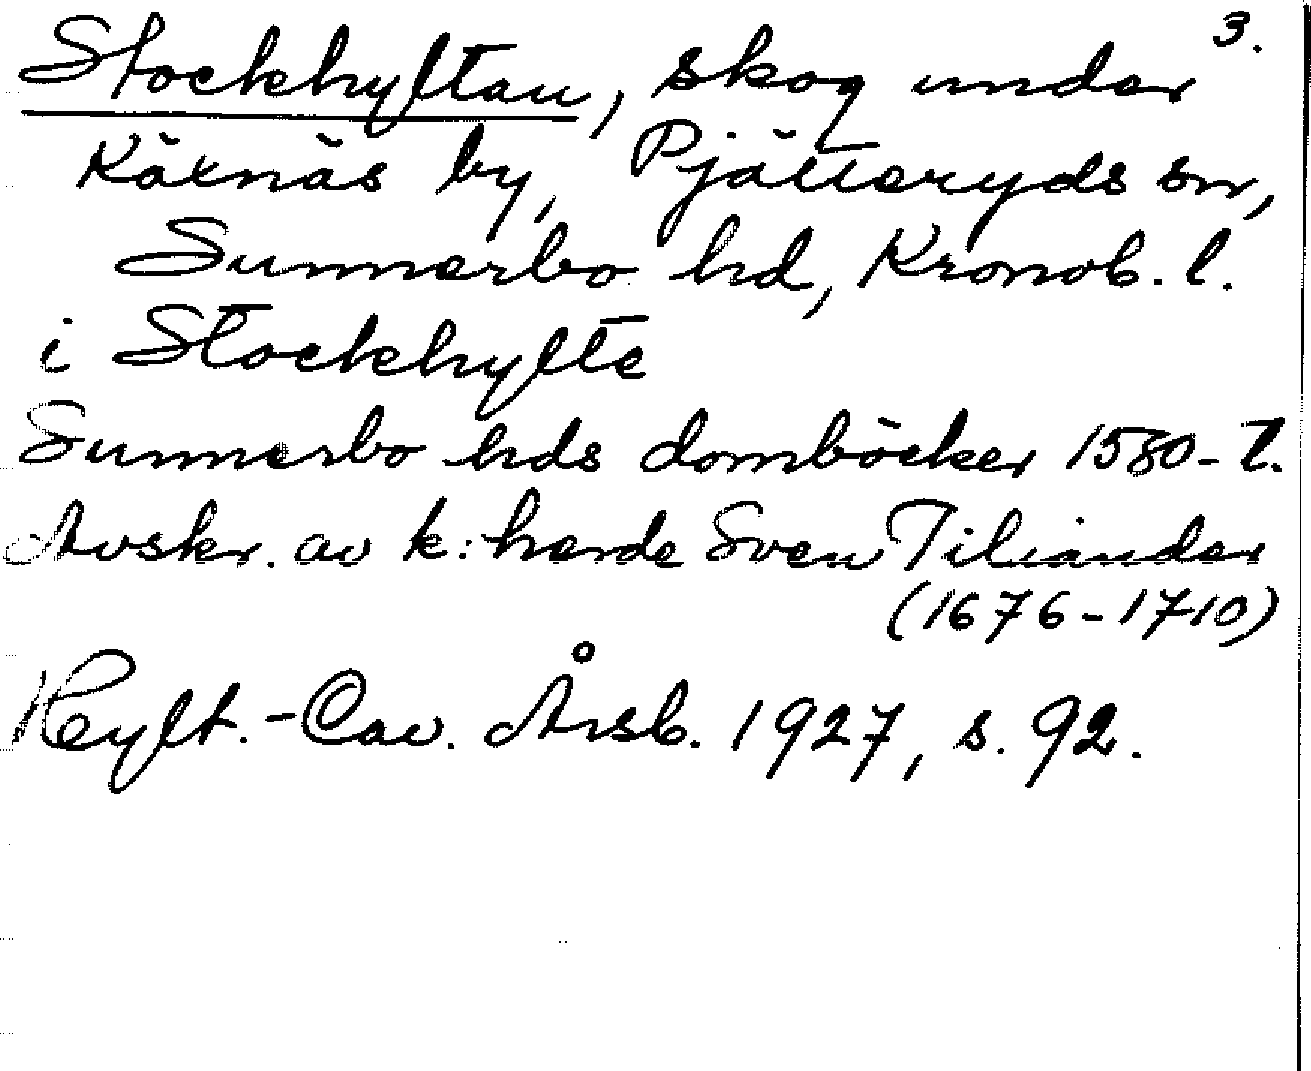 3.
Stockhyltan, skog under
Käxnäs by, Pjätteryds sn,
Sunnerbo hd, Kronob. l.
i Stockhylte
Sunnerbo hds domböcker 1580-t.
Avskr. av k:herde Sven Tiliander
(1676-1710)
Hylt.-Cav. Årsb. 1927, s. 92.